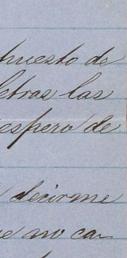 puesto de
letras las
espero de
decirme
e no ca-